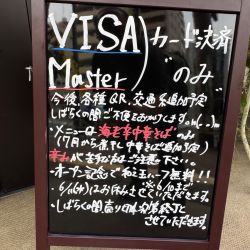 VISA
Master)カード決済
"のみ"
今後、各種QR、交通系追加予定
しばらくの間ご不便をおかけします。m(_ _)m
・メニューは海老辛中華そば のみ
(7月から煮干し中華そば追加予定)
辛みが苦手な方はご注意下さい。
・オープン記念で和玉ハーフ無料!!
6/
お休みさせていただきます。
・しばらくの間売り切れ次第終了と
させていただきます。